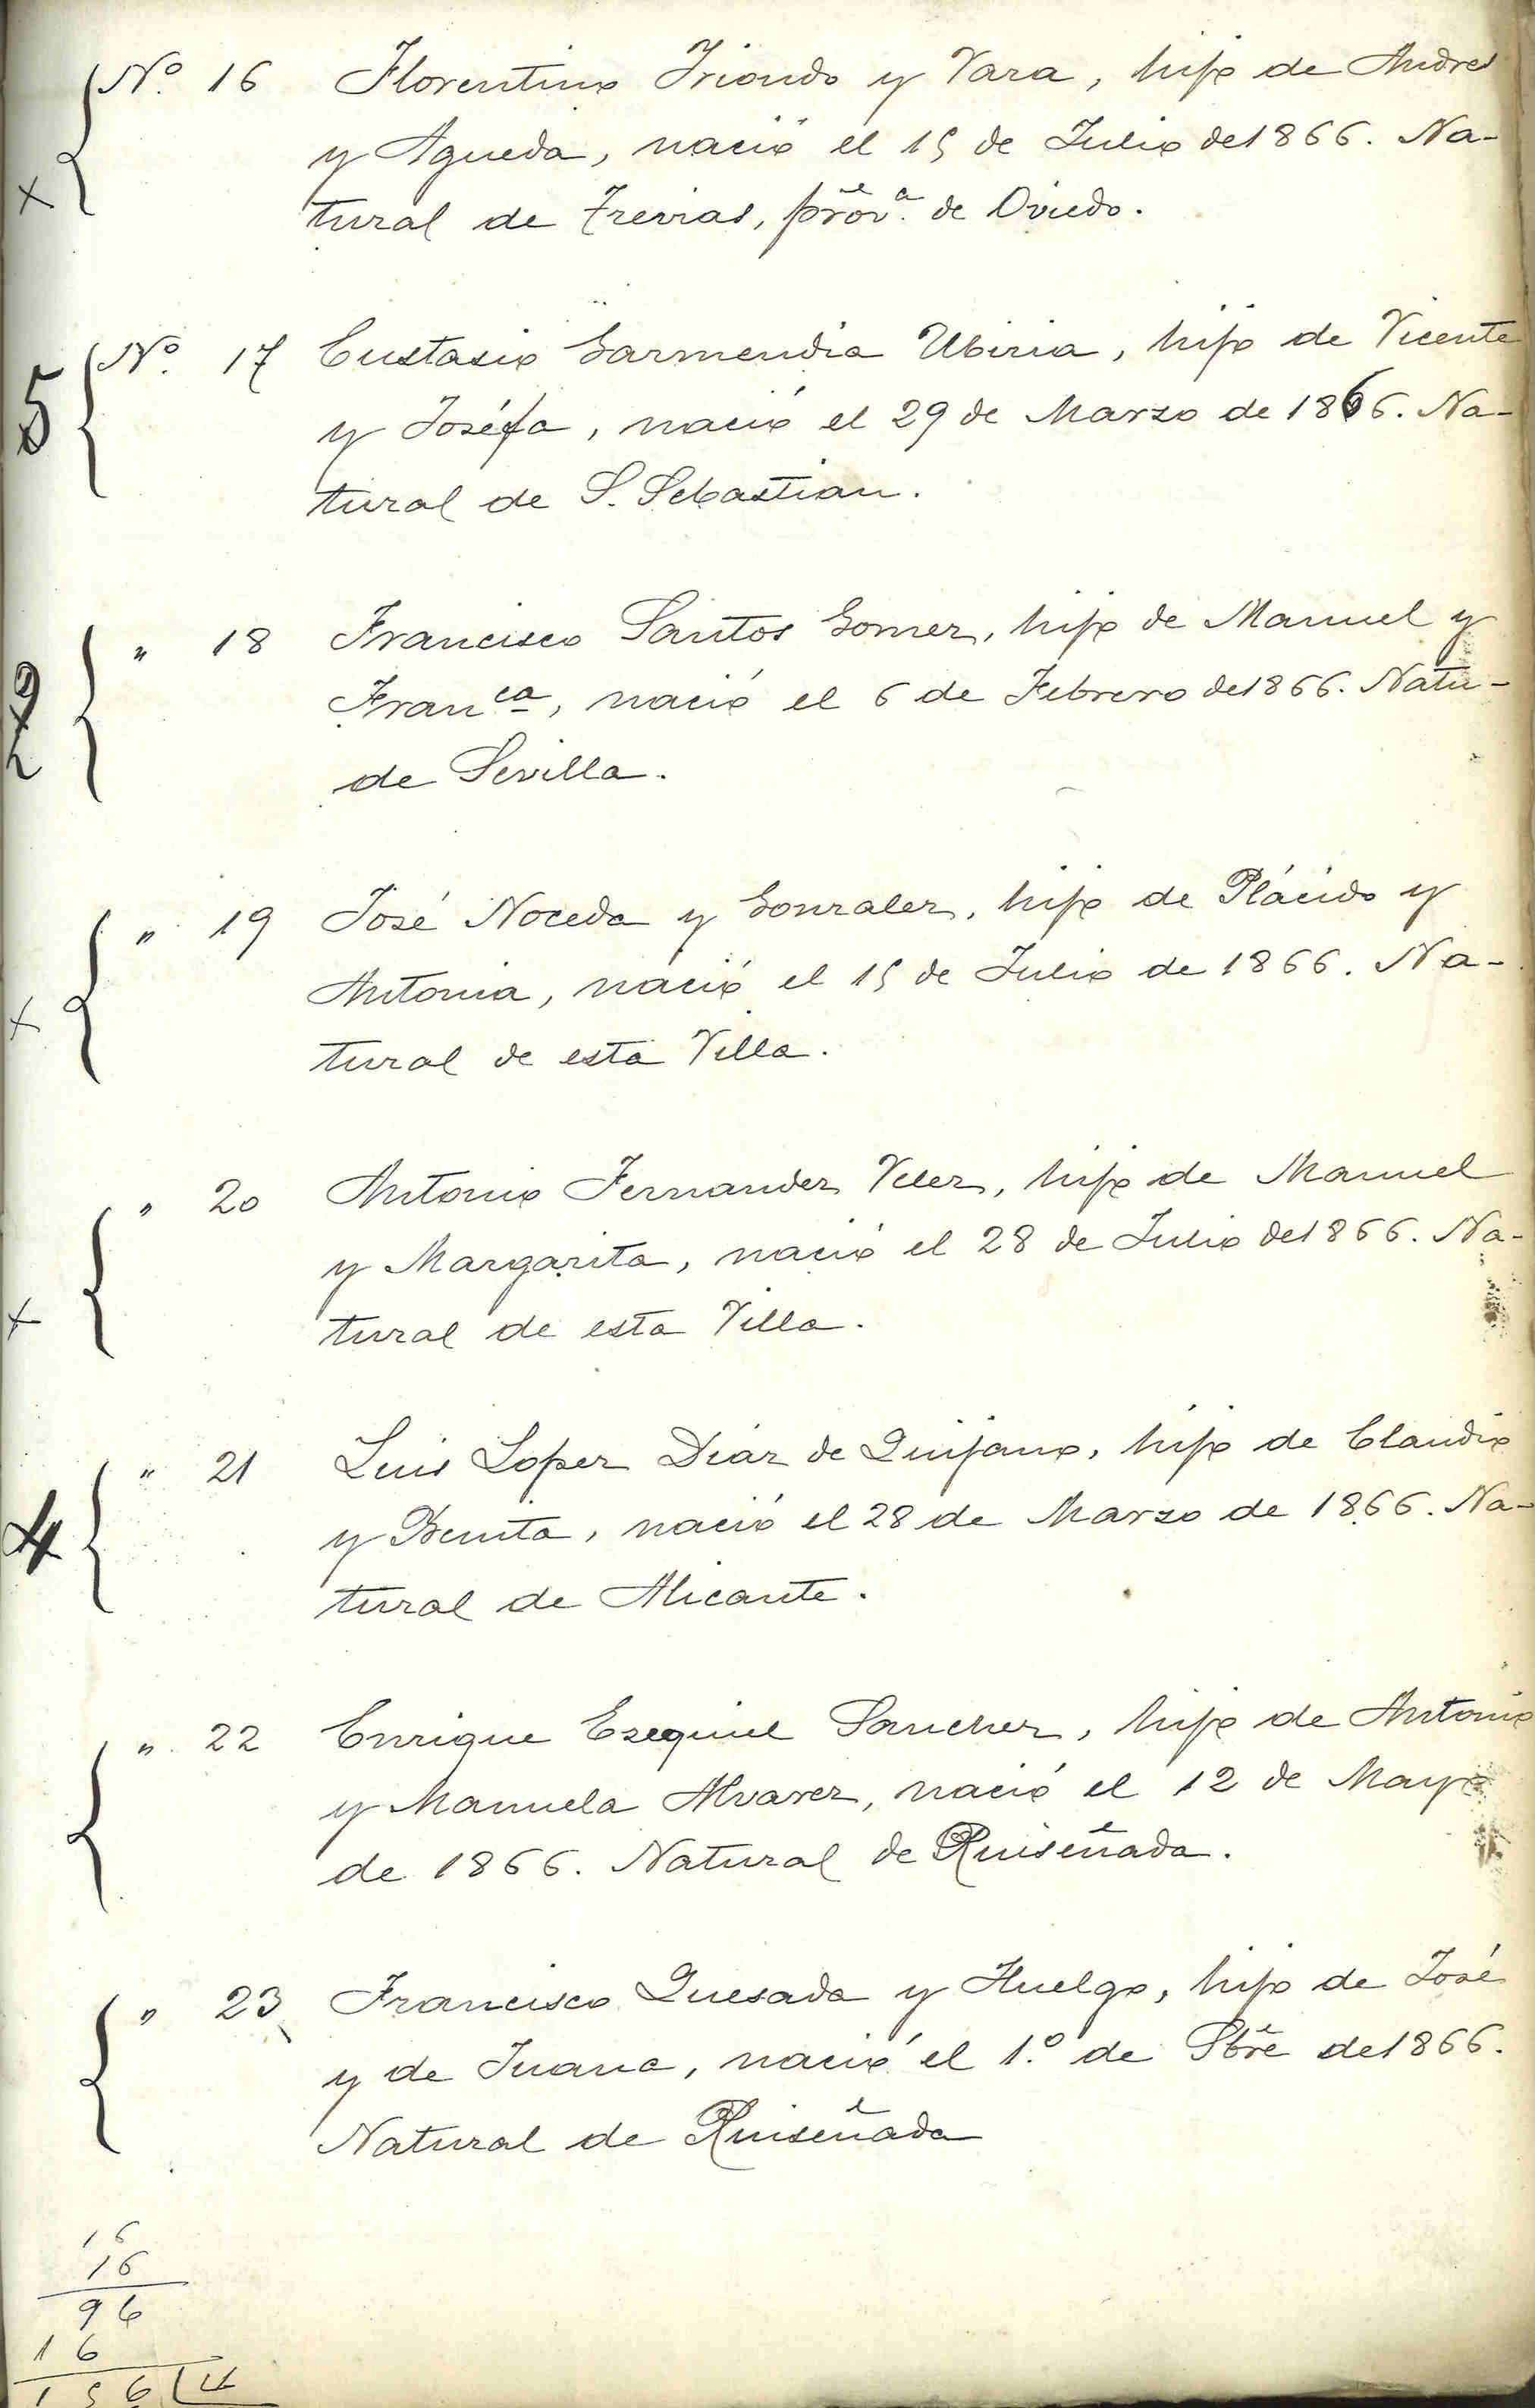 Nº 16 Florentino Iriondo y Vara, hijo de Andres
y Agueda, nació el 15 de Julio de 1866. Na-
x
tural de Trevias, provª. de Oviedo.
Nº 17 Eustasio Garmendia Ubiria, hijo de Vicente
5
y Joséfa, nació el 29 de Marzo de 1866. Na-
tural de S. Sebastian.
" 18 Francisco Santos Gomez, hijo de Manuel y
2
Franca, nació el 6 de Febrero de 1866. Natu-
de Sevilla.
" 19 José Noceda y Gonzalez, hijo de Plácido y
Antonia, nació el 15 de Julio de 1866. Na-
x
tural de esta Villa.
" 20 Antonio Fernandez Velez, hijo de Manuel
y Margarita, nació el 28 de Julio de 1866. Na-
x
tural de esta Villa.
" 21 Luis Lopez Diáz de Quijano, hijo de Claudio
4
y Benita, nació el 28 de Marzo de 1866. Na-
tural de Alicante.
" 22 Enrique Ezequiel Sanchez, hijo de Antonio
y Manuela Alvarez, nació el 12 de Mayo
de 1866. Natural de Ruiseñada.
" 23 Francisco Quesada y Huelgo, hijo de José
y de Juana, nació el 1.º de Sbre de 1866.
Natural de Ruiseñada
16
16
96
16
156 4